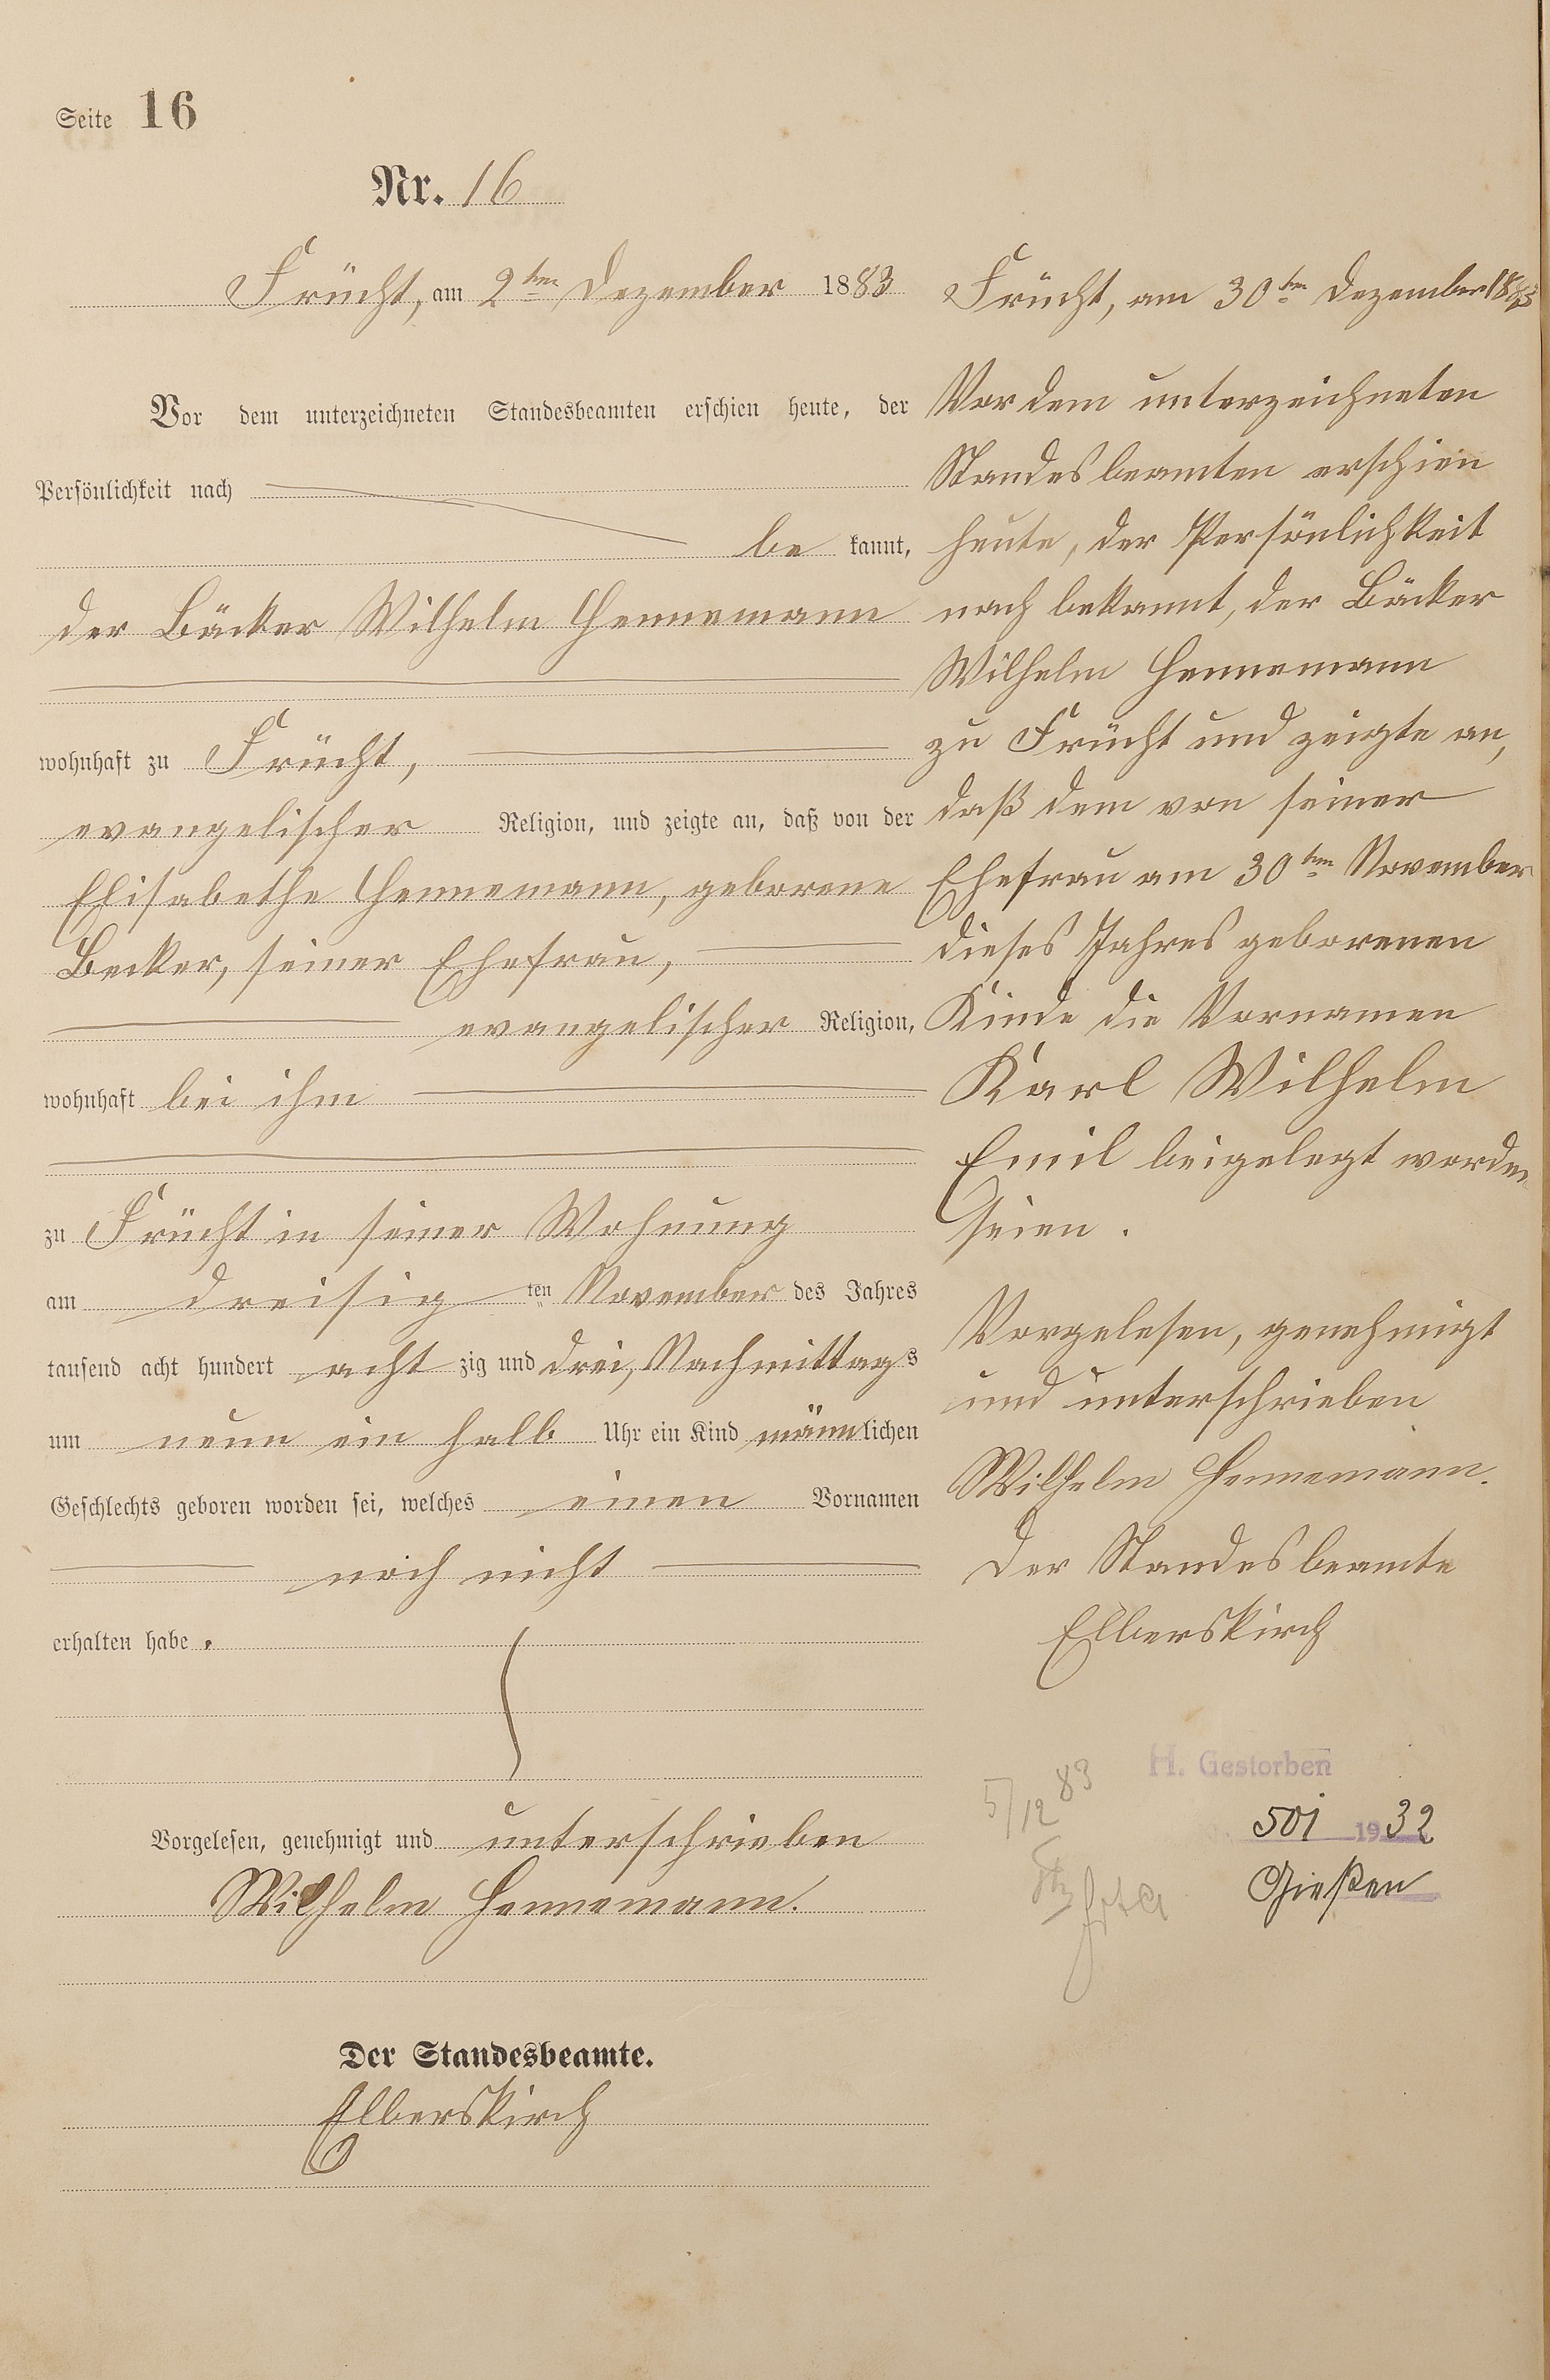 Seite 16
Nr. 16
Frücht, am 2ten Dezember 1883
Vor dem unterzeichneten Standesbeamten erschien heute, der
Persönlichkeit nach
be kannt,
der Bäcker Wilhelm Hennemann
wohnhaft zu Frücht,
evangelischer Religion, und zeigte an, daß von der
Elisabethe Hennemann, geborene
Becker, seiner Ehefrau,
evangelischer Religion,
wohnhaft bei ihm
zu Frücht in seiner Wohnung
am dreisig ten November des Jahres
tausend acht hundert acht zig und drei, Nachmittags
um neun ein halb Uhr ein Kind männlichen
Geschlechts geboren worden sei, welches einen Vornamen
noch nicht
erhalten habe.
Vorgelesen, genehmigt und unterschrieben
Wilhelm Hennemann.
Der Standesbeamte.
Elberskirch
Frücht, am 30ten Dezember 1883
Vor dem unterzeichneten
Standesbeamten erschien
heute, der Persönlichkeit
nach bekannt, der Bäcker
Wilhelm Hennemann
zu Frücht und zeigte an,
daß dem von seiner
Ehefrau am 30ten November
dieses Jahres geborenen
Kinde die Vornamen
Karl Wilhelm
Emil beigelegt worden
seien.
Vorgelesen, genehmigt
und unterschrieben
Wilhelm Hennemann.
Der Standesbeamte
Elberskirch
H. Gestorben
501 1932
Gießen
5/12 83